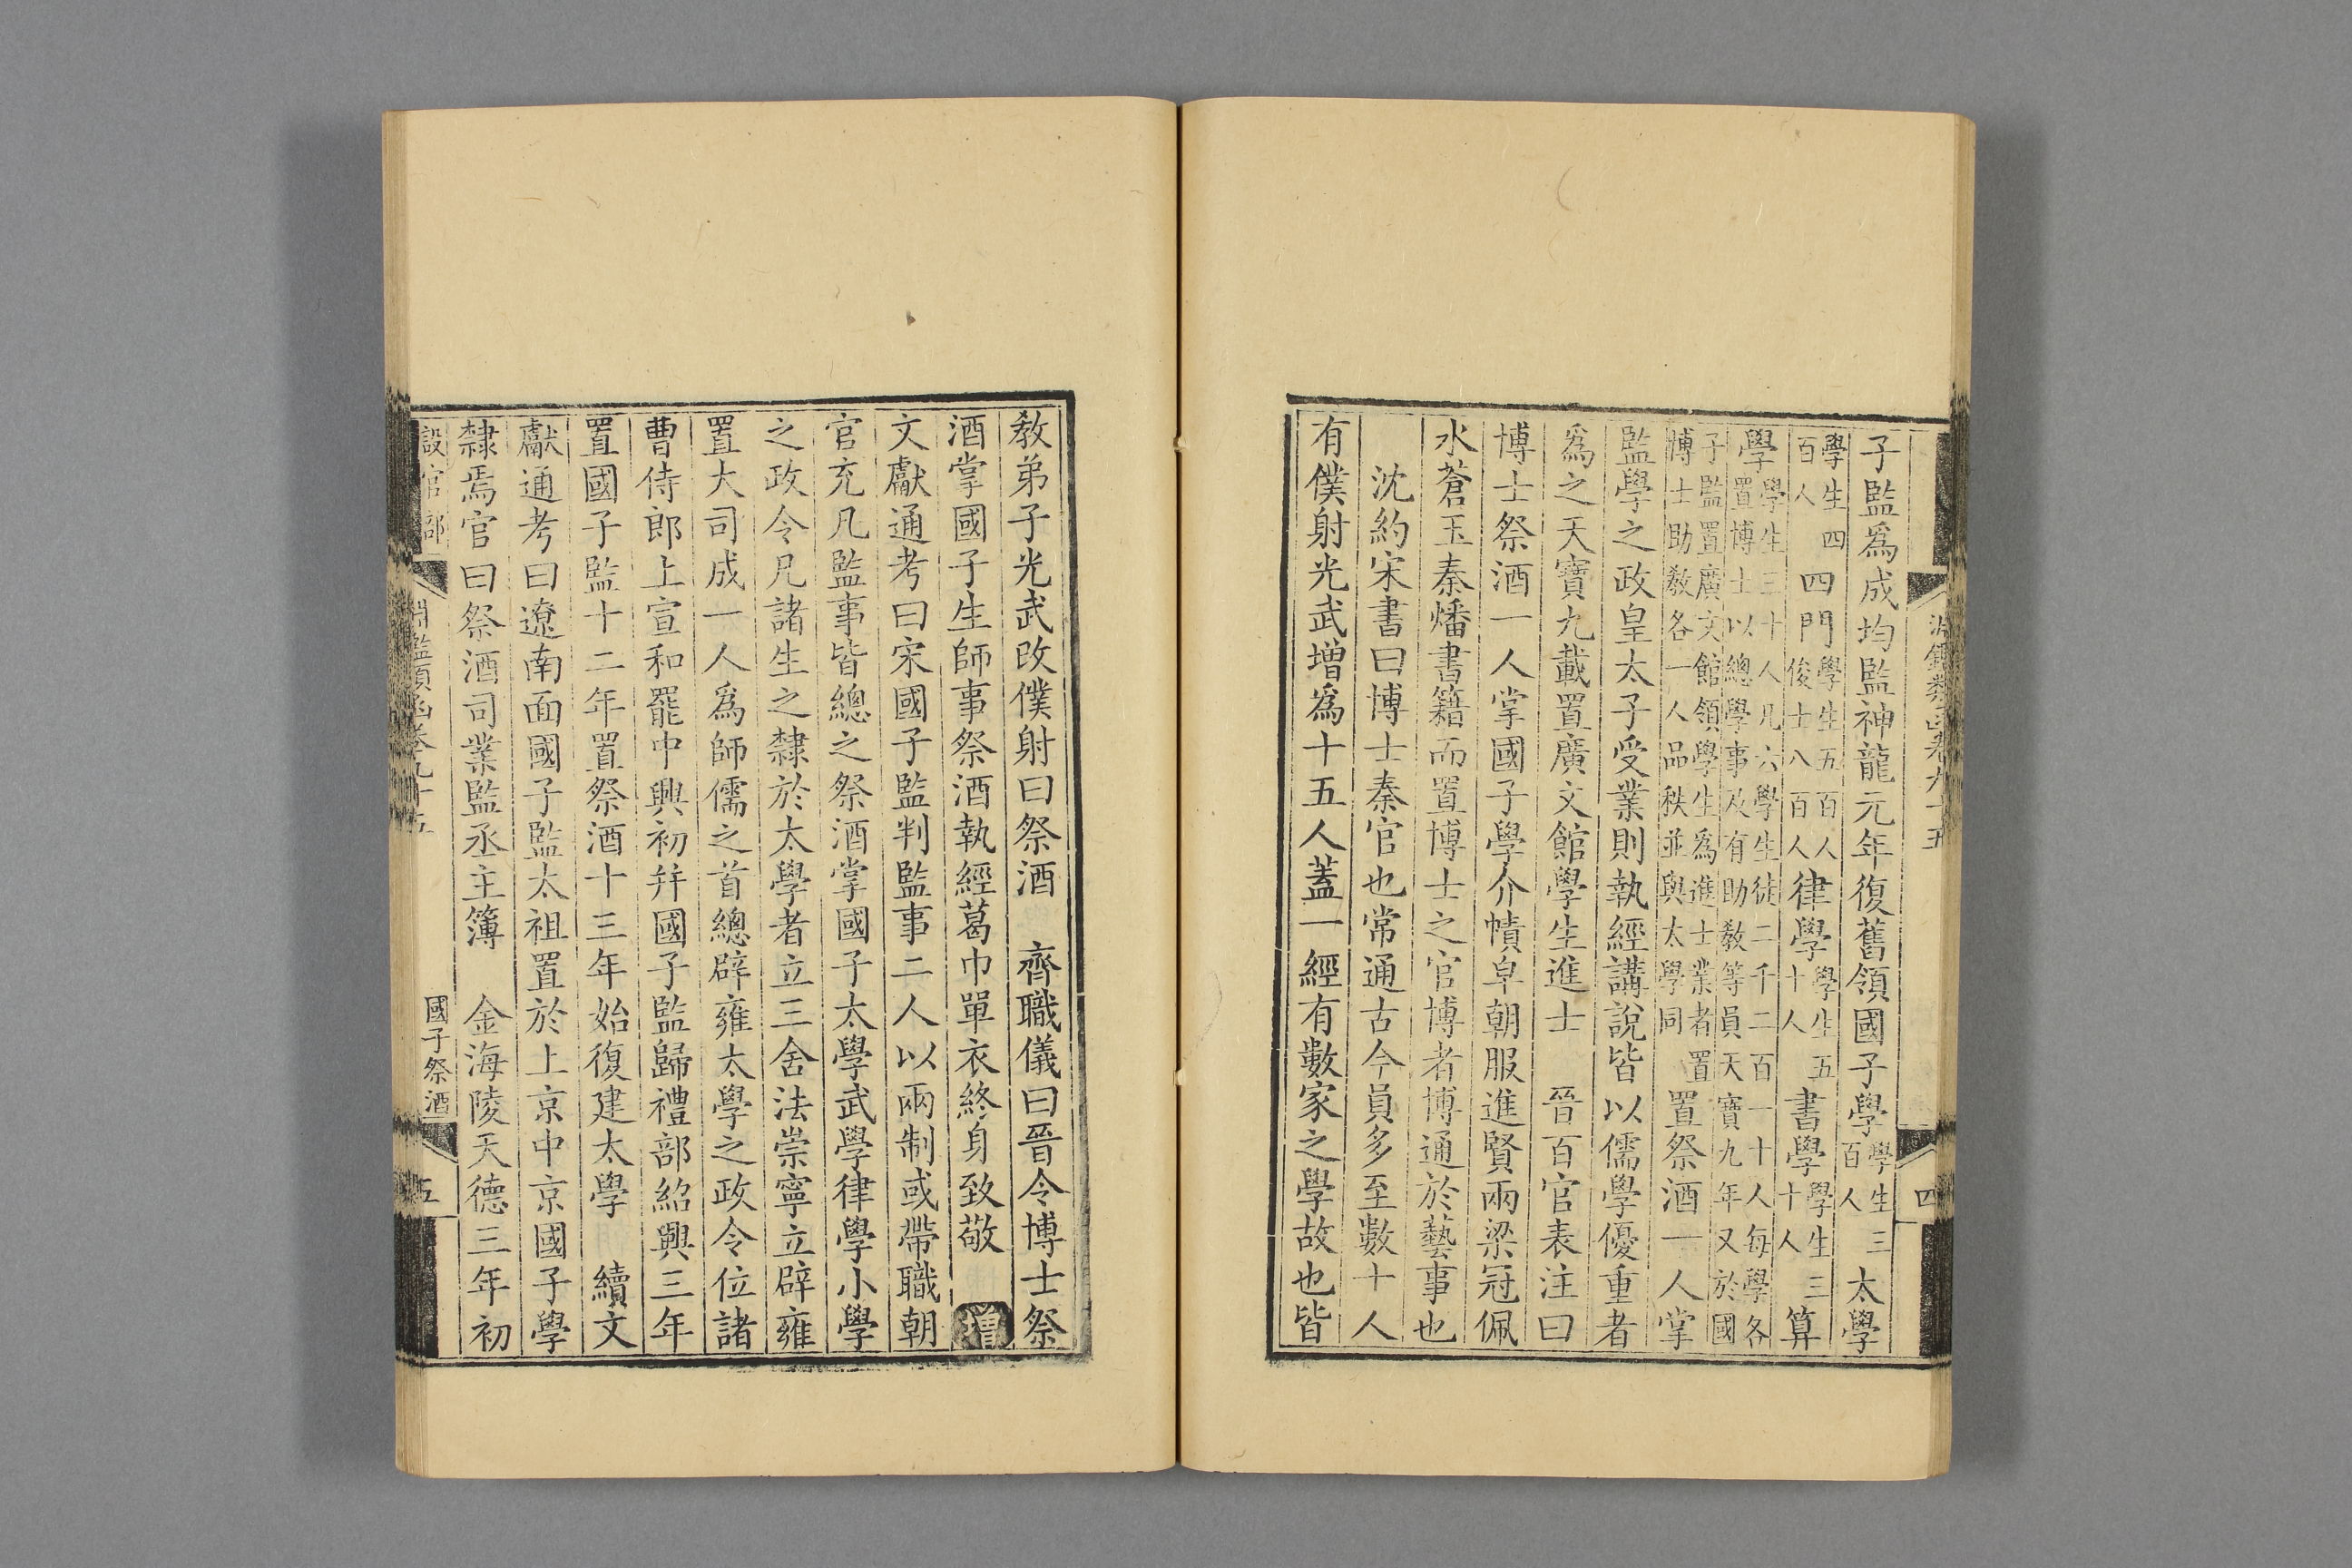 子監爲成均監神龍元年復舊領國子學學生三百人太學
學生四百人四門學生五百人俊士八百人律學學生五十人書學學生三十人算
學學生三十人凡六學學生徒二千二百一十人每學各置博士以總學事及有助教等員天寶九年又於國
子監置廣文館領學生爲進士業者置博士助教各一人品秩並與太學同置祭酒一人掌
監學之政皇太子受業則執經講說皆以儒學優重者
爲之天寶九載置廣文館學生進士　晉百官表注曰
博士祭酒一人掌國子學介幘皁朝服進賢兩梁冠佩
水蒼玉秦燔書籍而置博士之官博者博通於藝事也
沈約宋書曰博士秦官也常通古今員多至數十人
有僕射光武增爲十五人蓋一經有數家之學故也皆
淵鑑類函卷九十五
四
教弟子光武改僕射曰祭酒　齊職儀曰晉令博士祭
酒掌國子生師事祭酒執經葛巾單衣終身致敬　增
文獻通考曰宋國子監判監事二人以兩制或帶職朝
官充凡監事皆總之祭酒掌國子太學武學律學小學
之政令凡諸生之隸於太學者立三舍法崇寧立辟雍
置大司成一人爲師儒之首總辟雍太學之政令位諸
曹侍郎上宣和罷中興初幷國子監歸禮部紹興三年
置國子監十二年置祭酒十三年始復建太學　續文
獻通考曰遼南面國子監太祖置於上京中京國子學
隸焉官曰祭酒司業監丞主簿　金海陵天德三年初
設官部
淵鑑類函卷九十五
國子祭酒
五